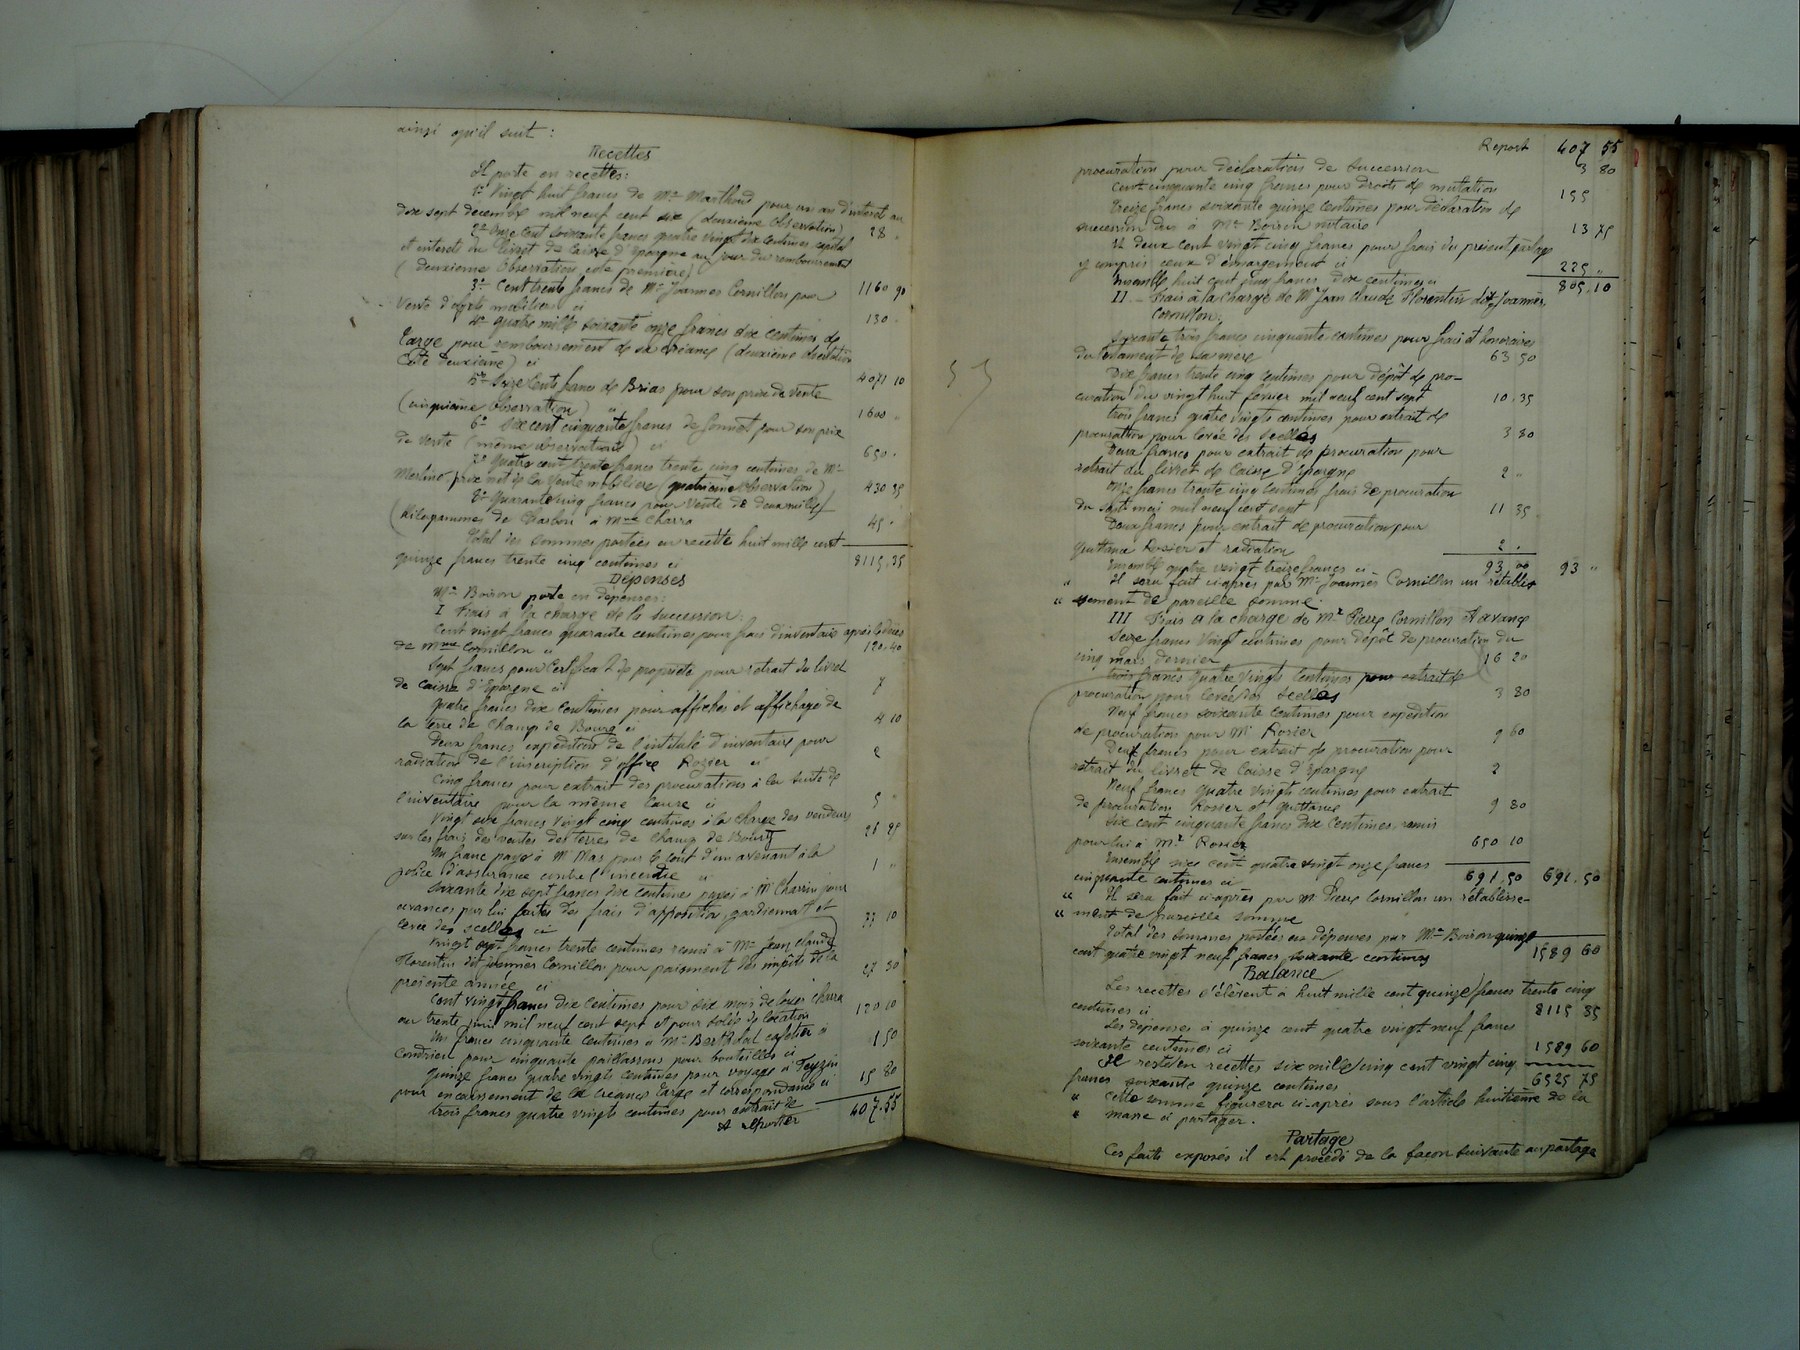 ainsi qu'il suit :
Recettes
Il porte en recettes :
1º Vingt huit francs de Mr Marthoud pour un an d'intérêt au
dix sept décembre mil neuf cent six (deuxième Observation) 28 "
2º Onze cent soixante francs quatre vingt dix centimes capital
et intérêt du livret de Caisse d'Epargne au jour du remboursement
(deuxième Observation cote première) 1160 90
3º Cent trente francs de Mr Joannès Cornillon pour
vente d'objets mobiliers ci 130 "
4º Quatre mille soixante onze francs dix centimes de
Large pour remboursement de sa créance (deuxième observation
Cote deuxième) ci 4071 10
5º Seize cents francs de Brias pour son prix de vente
(cinquième Observation) " 1600 "
6º Six cent cinquante francs de Jonnet pour son prix
de vente (même observation) ci 650 "
7º Quatre cent trente francs trente cinq centimes de Me
Merlino prix net de la vente mobilière (quatrième Observation) 430 35
8º Quarante cinq francs pour vente de deux mille
Kilogrammes de Charbon à Mme Charra 45 "
Total des sommes portées en recette huit mille cent
quinze francs trente cinq centimes ci 8115.35
Dépenses
Me Boiron porte en dépenses :
I Frais à la charge de la succession.
Cent vingt francs quarante centimes pour frais d'inventaire après le décès
de Mme Cornillon ci 120.40
Sept francs pour Certificat de propriété pour retrait du livret
de Caisse d'Epargne ci 7
Quatre francs dix centimes pour affiches et affichage de
la terre de Champ de Bourg ci 4 10
Deux francs expédition de l'intitulé d'inventaire pour
radiation de l'inscription d'office Rozier ci 2
Cinq francs pour extrait des procurations à la suite de
l'inventaire pour la même cause ci 5 "
Vingt six francs vingt cinq centimes à la charge des vendeurs
sur les frais des ventes des terres de Champ de Bourg 26 25
Un franc payé à Mr Mas pour le coût d'un avenant à la
police d'assurance contre l'incendie ci 1 "
Soixante dix sept francs dix centimes payés à Me Charrin pour
avances par lui faites des frais d'apposition, gardiennat et
levée des scellés ci 77 10
Vingt sept francs trente centimes remis à Mr Jean Claude
Florentin dit Joannès Cornillon pour paiement des impôts de la
présente année ci 27 30
Cent vingt francs dix centimes pour six mois de loyer Charra
au trente juin mil neuf cent sept et pour solde de location 120 10
Un franc cinquante centimes à Mr Barthélal cafetier à
Condrieu pour cinquante paillassons pour bouteilles ci 1 50
Quinze francs quatre vingts centimes pour voyage à Feyzin
pour encaissement de la créance Large et correspondance ci 15 80
trois francs quatre vingt centimes pour extrait de 407.55
A reporter
Report 407 55
procuration pour déclaration de succession 3 80
Cent cinquante cinq francs pour droits de mutation 155
Treize francs soixante quinze centimes pour déclaration de
succession dus à Me Boiron notaire 13 75
Et deux cent vingt cinq francs pour frais du présent partage
y compris ceux d'émargement ci 225 "
Ensemble huit cent cinq francs dix centimes ci 805.10
II – Frais à la charge de Mr Jean Claude Florentin dit Joannès
Cornillon.
Soixante trois francs cinquante centimes pour frais et honoraires
du testament de sa mère 63 50
Dix francs trente cinq centimes pour dépôt de pro-
curation du vingt huit février mil neuf cent sept 10.35
trois francs quatre vingts centimes pour extrait de
procuration pour levée des scellés 3 80
Deux francs pour extrait de procuration pour
retrait du livret de Caisse d'Epargne 2 "
Onze francs trente cinq centimes frais de procuration
du sept mai mil neuf cent sept 11 35
Deux francs pour extrait de procuration pour
quittance Rosier et radiation 2 .
Ensemble quatre vingt treize francs ci 93 00 93 "
" Il sera fait ci-après par Mr Joannès Cornillon un rétablis-
" sement de pareille somme
III Frais à la charge de Mr Pierre Cornillon
Seize francs vingt centimes pour dépôt de procuration du
cinq mars dernier 16 20
trois francs quatre vingts centimes pour extrait de
procuration pour levée des scellés 3 80
Neuf francs soixante centimes pour expédition
de procuration pour Mr Rosier 9 60
Deux francs pour extrait de procuration pour
retrait du livret de Caisse d'Epargne 2
Neuf francs quatre vingts centimes pour extrait
de procuration Rosier et quittance 9 80
Six cent cinquante francs dix centimes remis
pour lui à Mr Rosier 650 10
Ensemble six cent quatre vingt onze francs
cinquante centimes ci 691.50 691.50
" Il sera fait ci-après par Mr Pierre Cornillon un rétablisse-
" ment de pareille somme
Total des sommes portées en dépenses par Me Boiron quinze
cent quatre vingt neuf francs soixante centimes 1589 60
Balance
Les recettes s'élèvent à huit mille cent quinze francs trente cinq
centimes ci 8115 35
Les dépenses à quinze cent quatre vingt neuf francs
soixante centimes ci 1589 60
Il reste en recettes six mille cinq cent vingt cinq
francs soixante quinze centimes 6525 75
" Cette somme figurera ci-après sous l'article huitième de la
" masse à partager.
Partage
Ces faits exposés il est procédé de la façon suivante au partage